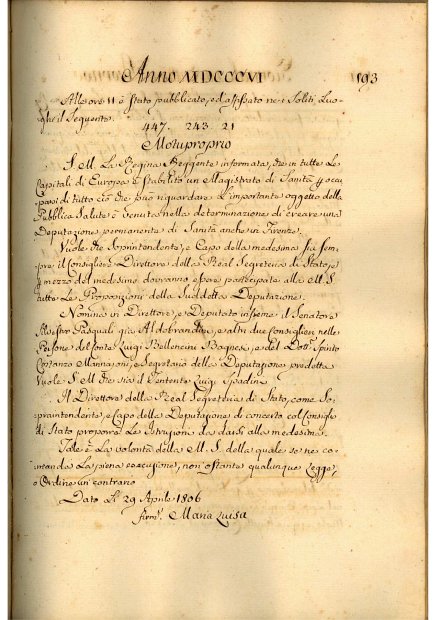 Anno MDCCCVI 193
Alle ore 11 è stato pubblicato, ed affissato ne i Soliti Luo-
ghi il Seguente.
447. 243. 21
Motuproprio
S. M. La Regina Reggente informata, che in tutte Le
Capitali di Europa è stabilito un Magistrato di Sanità p occu
parsi di tutto ciò che può riguardare L'importante oggetto della
Pubblica Salute è Venuta nella determinazione di creare una
Deputazione permanente di Sanità anche in Firenze.
Vuole che Soprintendente, e Capo della medesima sia sem-
pre il Consigliere Direttore della Real Segreteria di Stato, e
p mezzo del medesimo dovranno essere partecipate alla M. S.
tutte Le Proposizioni della Suddetta Deputazione.
Nomina in Direttore, e Deputato insieme il Senatore
Silvestro Pasquali già Aldobrandini, e altri due Consiglieri nelle
Persone del Conte Luigi Bellencini Bagnesi, e del Dott. Spirito
Costanzo Mannajoni, e Segretario della Deputazione predetta
Vuole S. M. che sia il Tenente Luigi Gradini
Il Direttore della Real Segreteria di Stato, come So-
praintendente, e Capo della Deputazione di concerto col Consiglio
di Stato proporrà Le Istruzioni da darsi alla medesima.
Tale è La volontà della M. S. della quale se ne co-
manda La piena esecuzione, non ostante qualunque Legge,
o Ordine in contrario
Dato Li 29 Aprile 1806
Firm. Maria Luisa